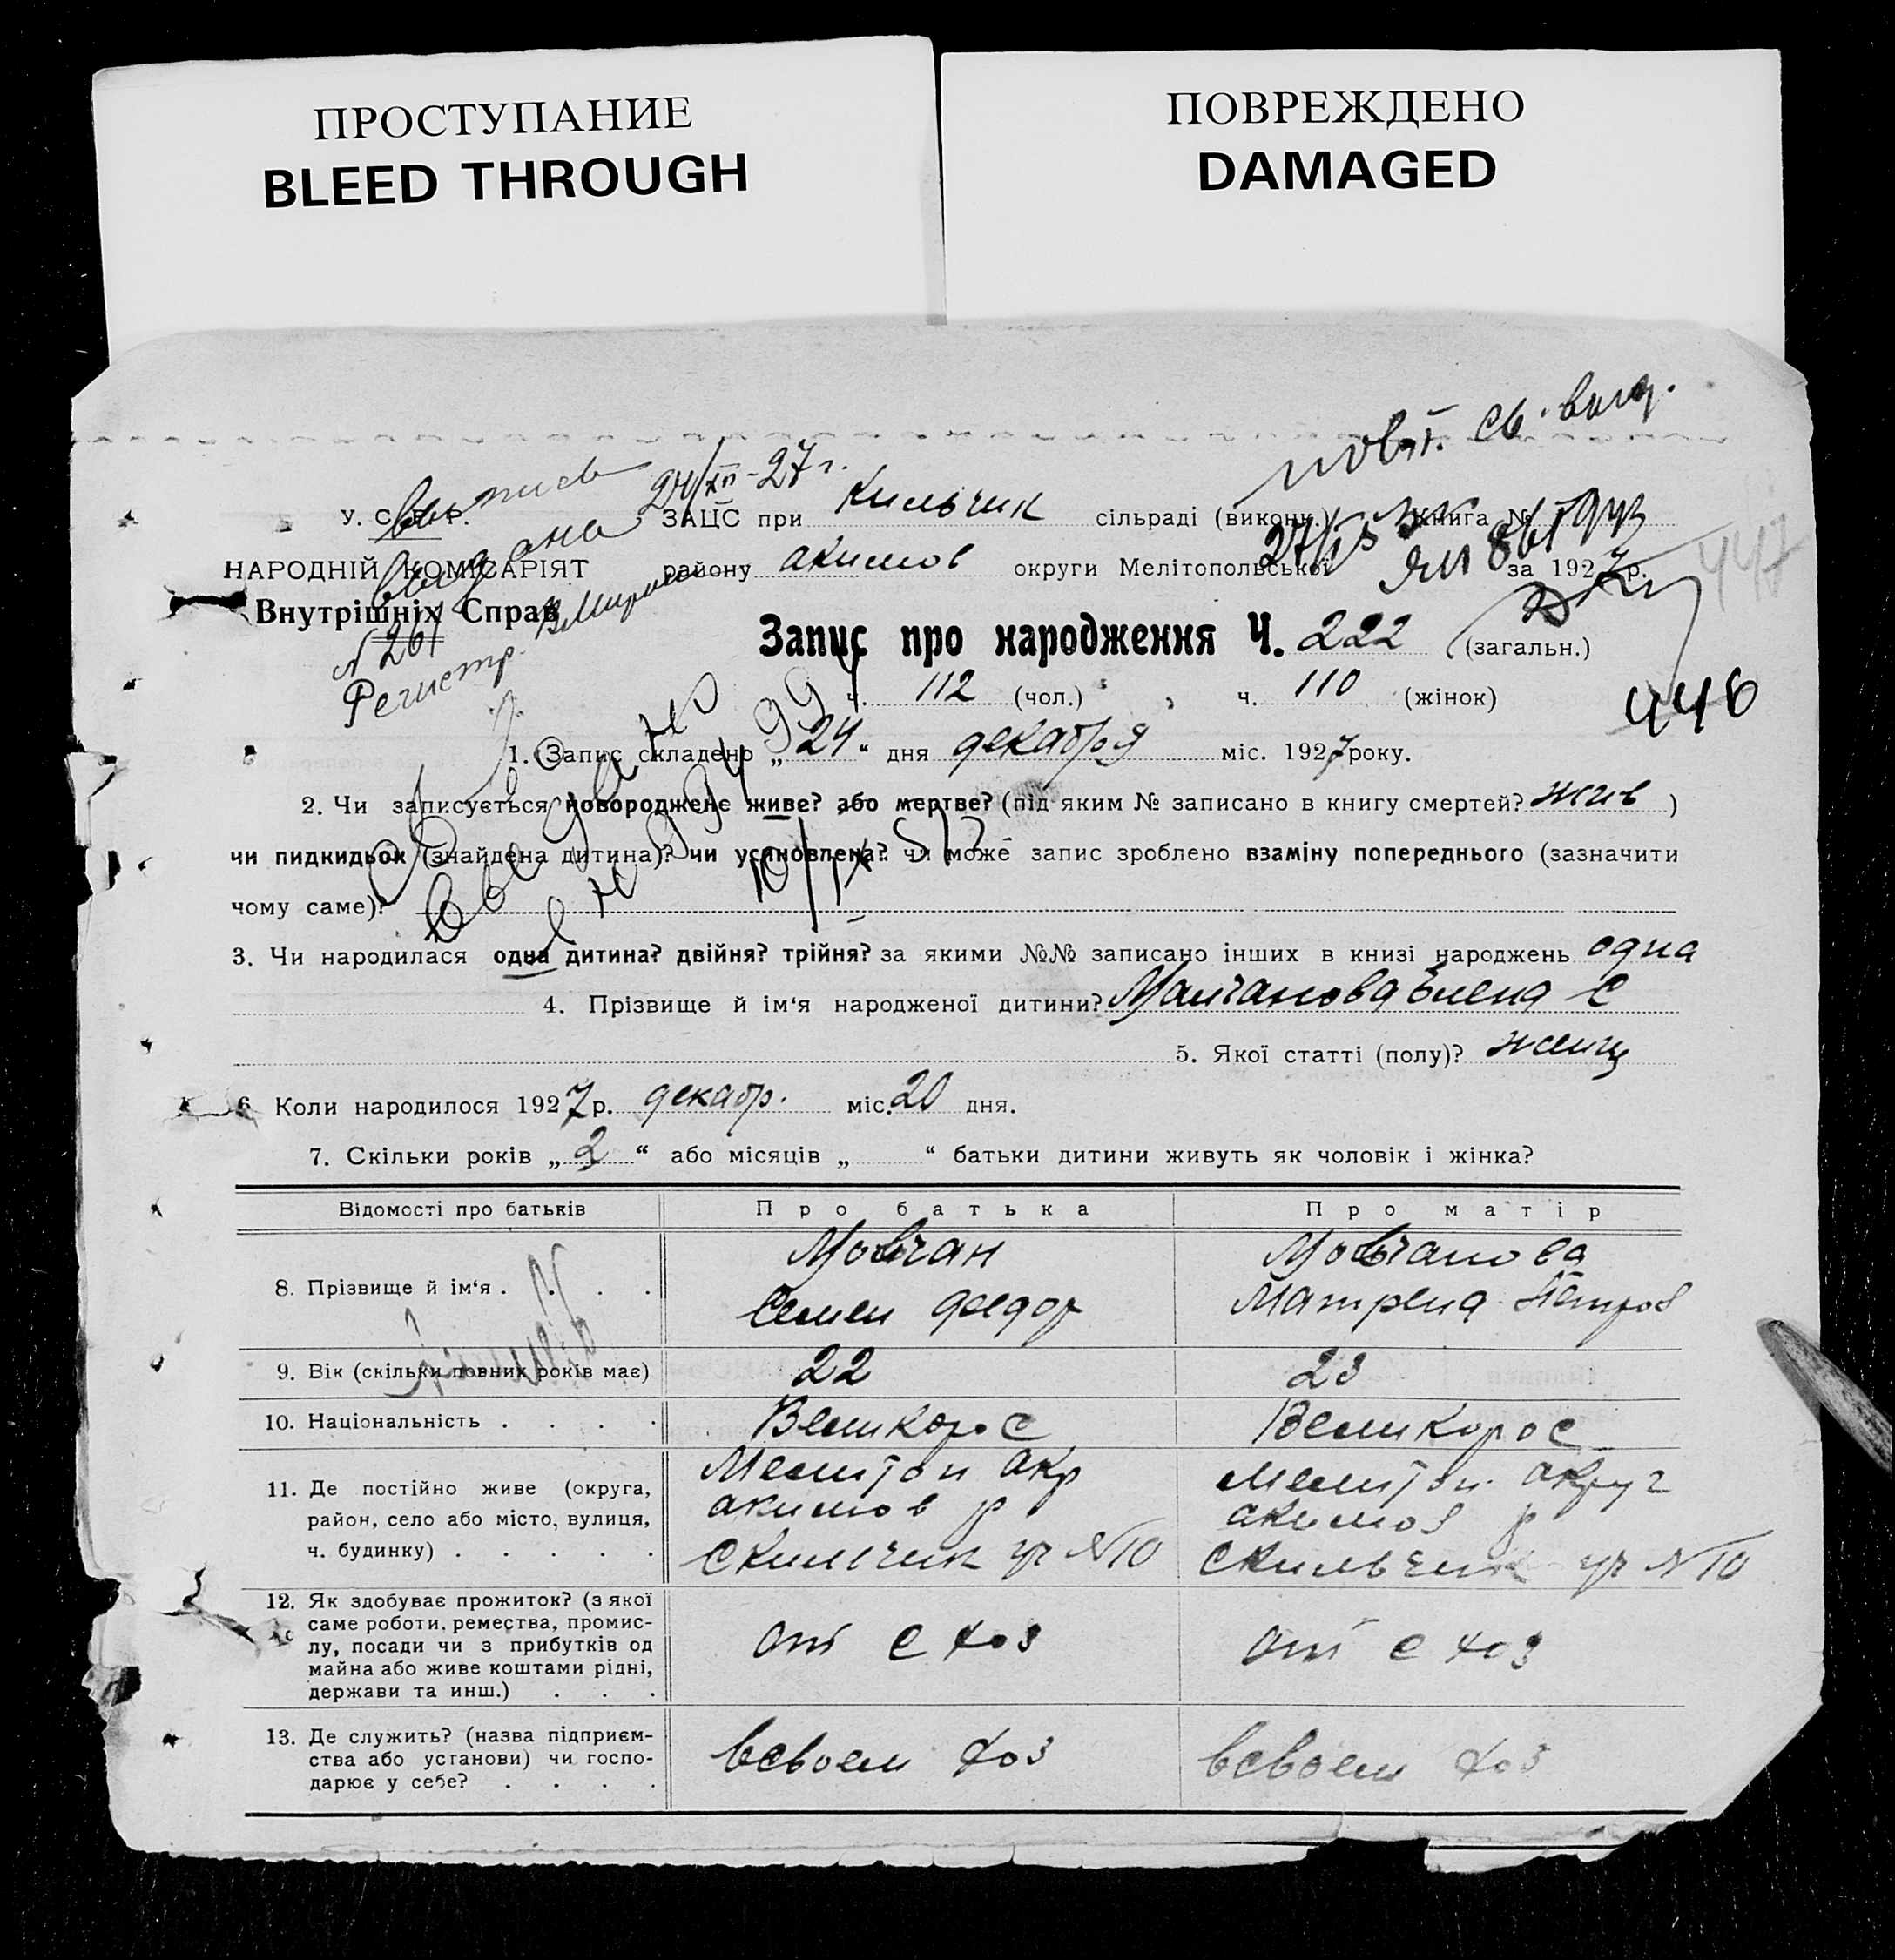 ПРОСТУПАНИЕ
BLEED THROUGH
ПОВРЕЖДЕНО
DAMAGED
повт. св. выд.
выпись
выдана
24/XII-27 г.
N 261
Регистр.
У. С. Р. Р.
НАРОДНІЙ КОМІСАРІЯТ
Внутрішніх Справ
ЗАЦС при Кильчик сільраді (виконк.) Книга №
району Акимов округи Мелітопольської за 1927 р.
447
Запис про народження Ч. 222 (загальн.)
ч. 112 (чол.) ч. 110 (жінок)
446
1. Запис складено „24“ дня декабря міс. 1927 року.
2. Чи записується новороджене живе? або мертве? (під яким № записано в книгу смертей? жив )
чи пидкидьок (знайдена дитина)? чи усиновлена? чи може запис зроблено взаміну попереднього (зазначити
чому саме)?
3. Чи народилася одна дитина? двійня? трійня? за якими №№ записано інших в книзі народжень одна
4. Прізвище й ім‘я народженої дитини? Малчанова Елена С
5. Якої статті (полу)? женщ
6 Коли народилося 1927 р. декабр. міс. 20 дня.
7. Скільки років „2“ або місяців „ “ батьки дитини живуть як чоловік і жінка?
Відомості про батьків Про батька Про матір
8. Прізвище й ім‘я . . . . Мовчан Мовчанова
Семен Федор Матрена Петров
9. Вік (скільки повних років має) 22 23
10. Національність . . . . Великорос Великорос
11. Де постійно живе (округа,
район, село або місто, вулиця,
ч. будинку) . . . . .
Мелитоп окр
акимов р
С Кильчик ур N 10
Мелитоп. округ
акимов р
С Кильчик ур N 10
12. Як здобуває прожиток? (з якої
саме роботи, ремества, промис-
лу, посади чи з прибутків од
майна або живе коштами рідні,
держави та инш.) . . .
от с хоз
от с хоз
13. Де служить? (назва підприєм-
ства або установи) чи госпо-
дарює у себе? . . . .
всвоем хоз
всвоем хоз